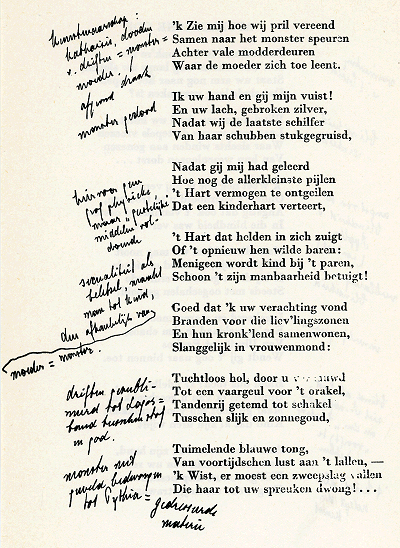 kunstenaarschap:
katharsis, dooden
v. driften = monster =
moeder. /
afgrond draak
monster gedood
'k Zie mij hoe wij pril vereend
Samen naar het monster speuren
Achter vale modderdeuren
Waar de moeder zich toe leent.
Ik uw hand en gij mijn vuist!
En uw lach, gebroken zilver,
Nadat wij de laatste schilfer
Van haar schubben stukgegruisd,
hiervoor geen
grof physieke,
maar geestelijke
middelen vol-
doende
Nadat gij mij had geleerd
Hoe nog de allerkleinste pijlen
't Hart vermogen te ontgeilen
Dat een kinderhart verteert,
sexualiteit als
maakt
man tot kind,
dus afhankelijk van
moeder = monster.
't Hart dat helden in zich zuigt
Of 't opnieuw hen wilde baren:
Menigeen wordt kind bij 't paren,
Schoon 't zijn manbaarheid betuigt!
Goed dat 'k uw verachting vond
Branden voor die liev'lingszonen
En hun kronk'lend samenwonen,
Slanggelijk in vrouwenmond:
driften gesubli-
meerd tot logos =
band tusschen stof
en god.
Tuchtloos hol, door u
Tot een vaargeul voor 't orakel,
Tandenrij getemd tot schakel
Tusschen slijk en zonnegoud,
monster met
geweld bedwongen
tot Pythia =
gedresseerde
materie
Tuimelende blauwe tong,
Van voortijdschen lust aan 't lallen, —
'k Wist, er moest een zweepslag vallen
Die haar tot uw spreuken dwong!...